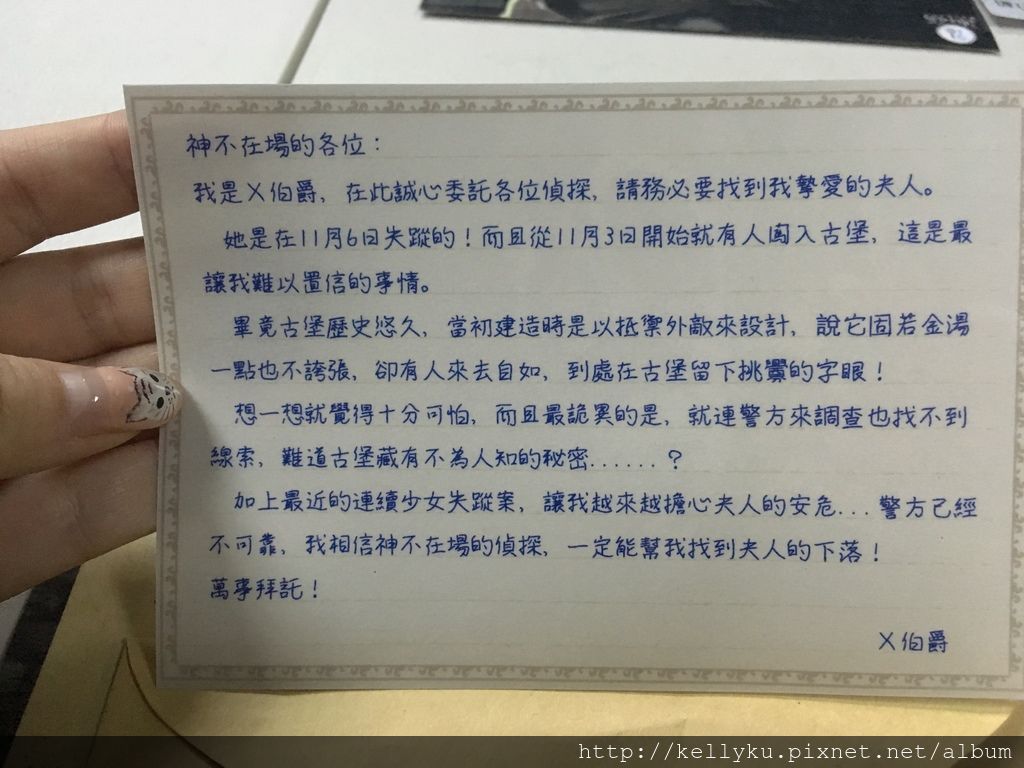 神不在場的各位：
我是X伯爵，在此誠心委託各位偵探，請務必要找到我摯愛的夫人。
她是在11月6日失蹤的！而且從11月3日開始就有人闖入古堡，這是最
讓我難以置信的事情。
畢竟古堡歷史悠久，當初建造時是以抵禦外敵來設計，說它固若金湯
一點也不誇張，卻有人來去自如，到處在古堡留下挑釁的字眼！
想一想就覺得十分可怕，而且最詭異的是，就連警方來調查也找不到
線索，難道古堡藏有不為人知的秘密......？
加上最近的連續少女失蹤案，讓我越來越擔心夫人的安危...警方已經
不可靠，我相信神不在場的偵探，一定能幫我找到夫人的下落！
萬事拜託！
X伯爵
http://kellyku.pixnet.net/album